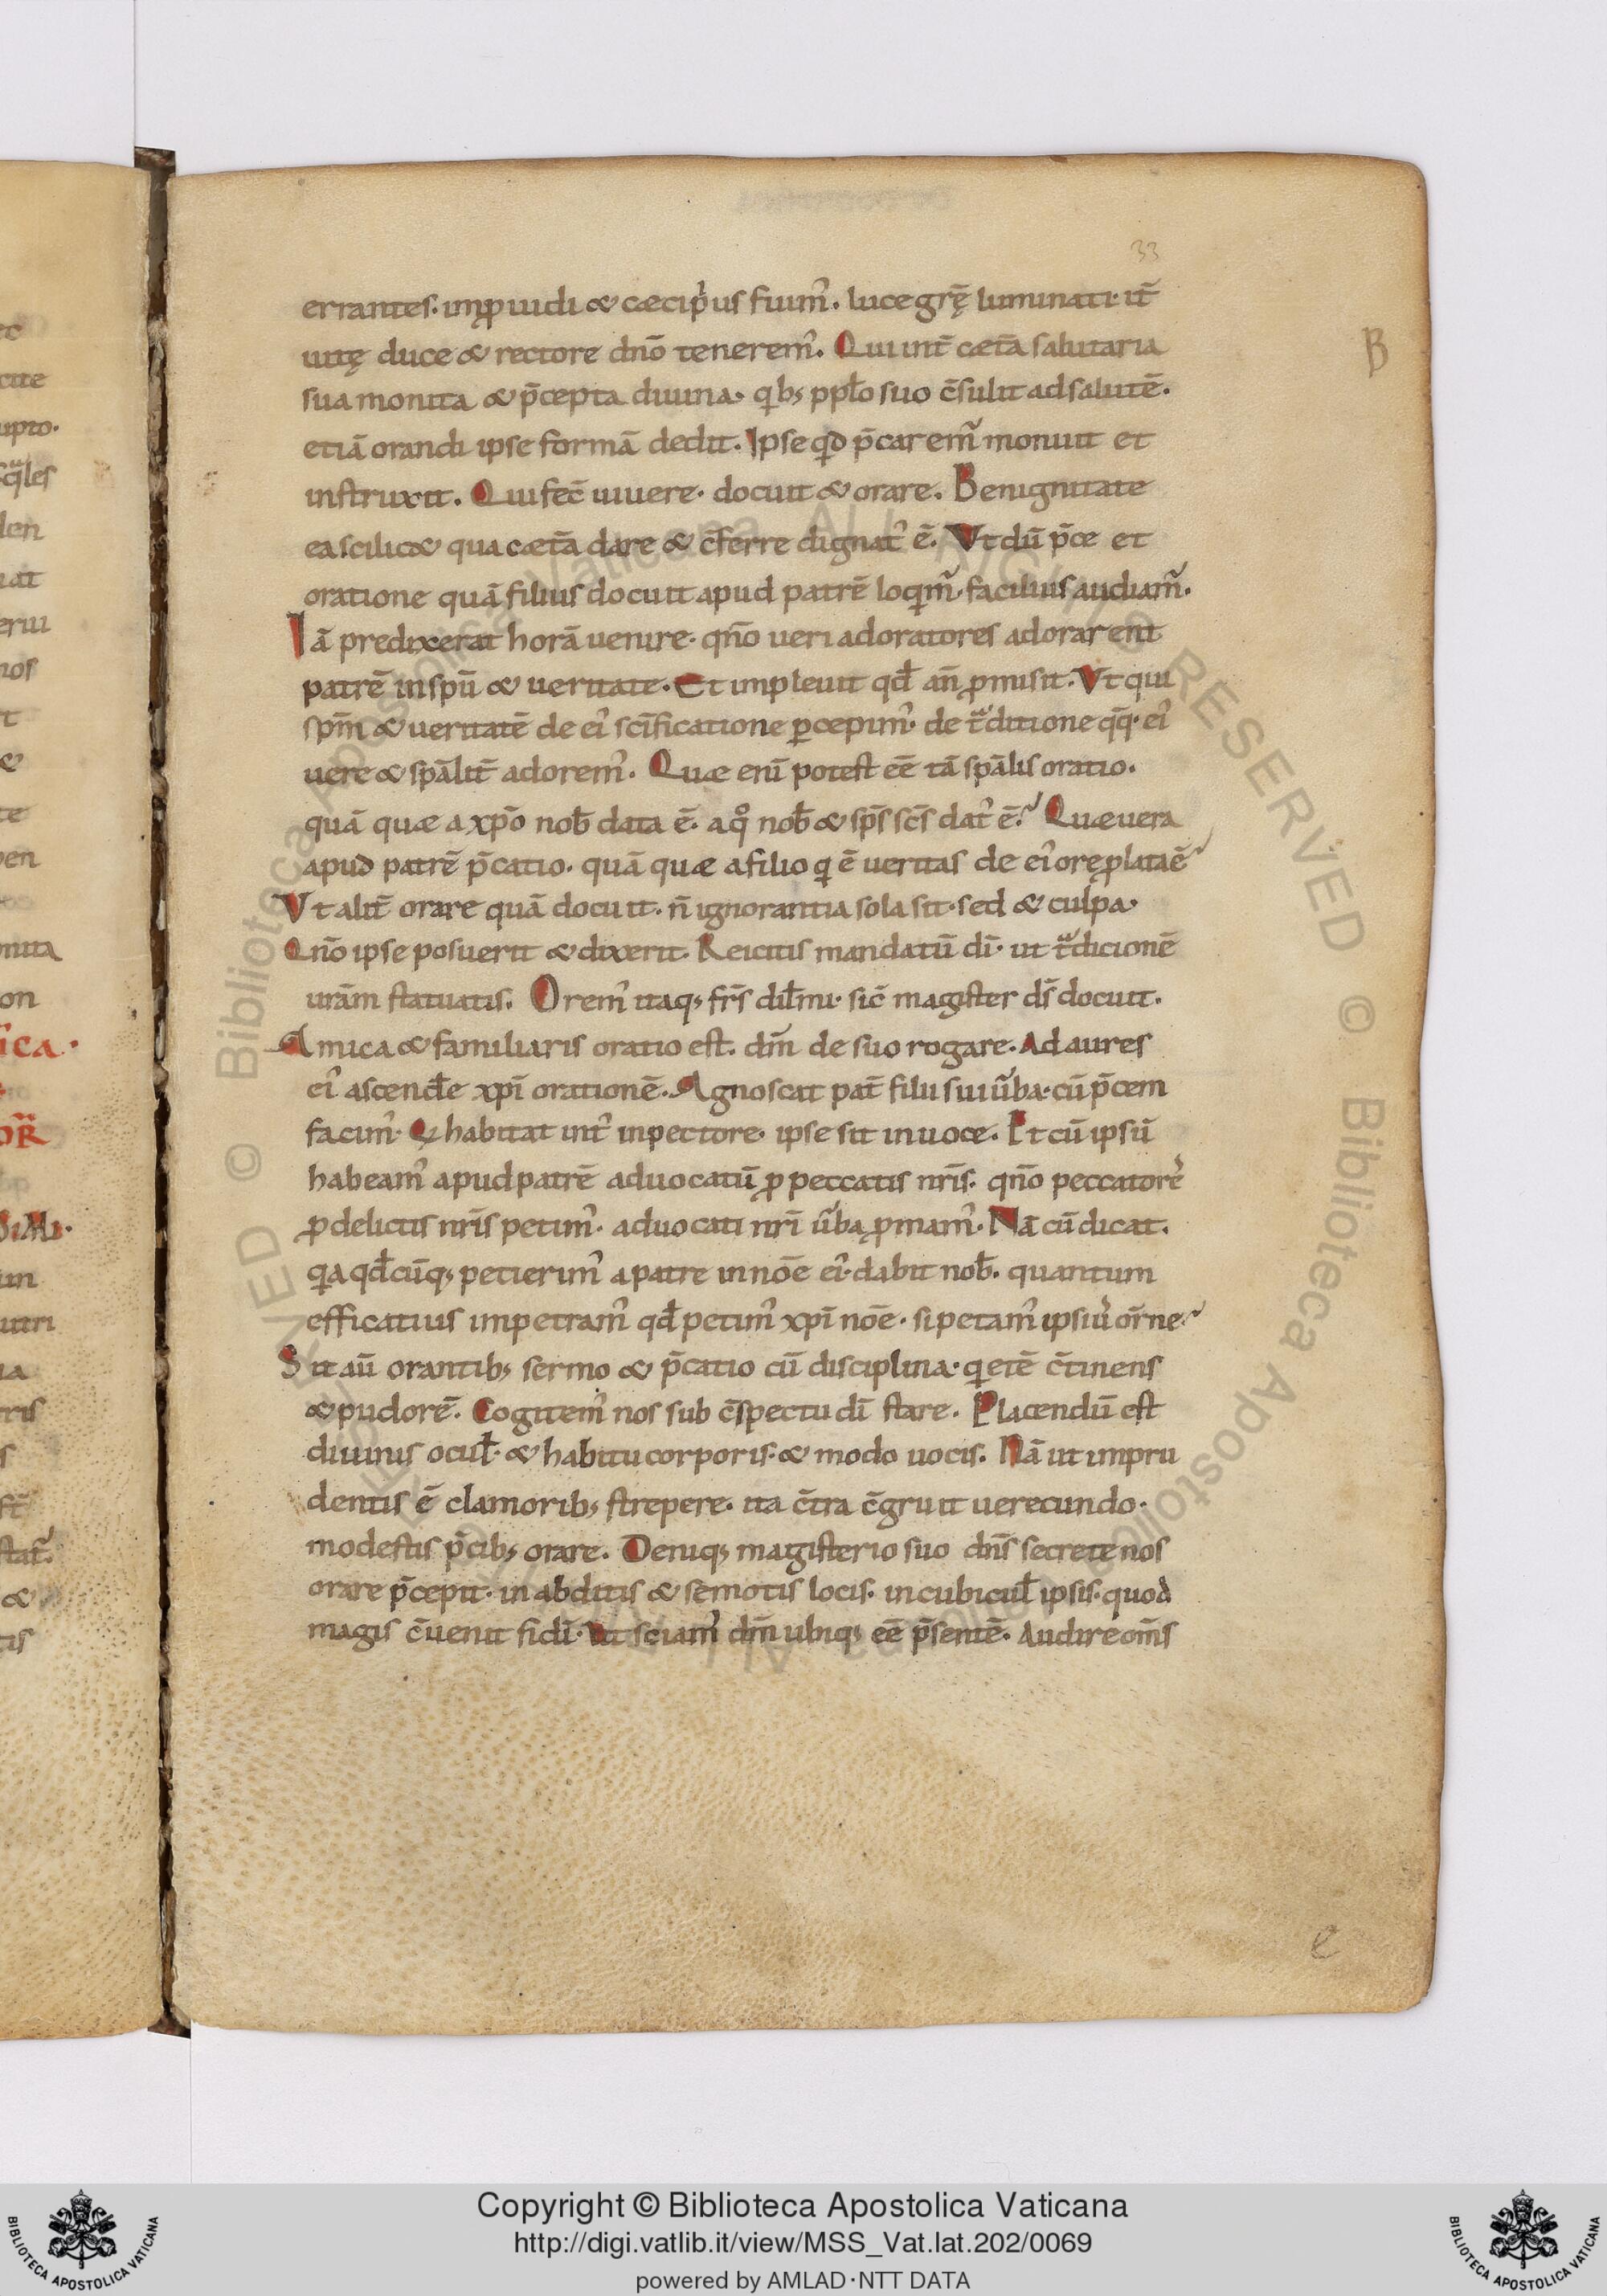 33
errantes. imꝓuidi & cæci pͥus fuimꝰ. luce grę̄ luminati. it̄
uitę duce & rectore dn̄o teneremꝰ. Qui int̄ cæt̄a salutaria
sua monita & p̄cepta diuina. qibꝫ pplo suo c̄sulit ad salutē.
etiā orandi ipse formā dedit. Ipse qͥd p̄caremᷓ monuit et
instruxit. Qui fec̄ uiuere. docuit & orare. Benignitate
ea scilic& qua cæt̄a dare & c̄ferre dignatꝰ ē. Vt dū p̄ce et
oratione quā filius docuit apud patrē loqimᷓ. facilius audiamᷓ.
Iā predixerat horā uenire. qn̄o ueri adoratores adorarent
patrē in spū & ueritate. Et impleuit qd̄ an̄ ꝓmisit. Vt qui
spm̄ & ueritatē de eiꝰ sc̄ificatione ꝑcepimꝰ. de tᷓditione qͦq̄. eiꝰ
uere & spālit̄ adoremꝰ. Quæ enī potest eē tā spālis oratio.
quā quæ a xp̄o nob̄ data ē. a qͦ nob̄ & sp̄s sc̄s datꝰ ē? Quæ uera
apud patrē p̄catio. quā quæ a filio qi ē ueritas de eiꝰ ore ꝓlata ē?
Vt alit̄ orare quā docuit. n̄ ignorantia sola sit. sed & culpa.
Qn̄o ipse posuerit & dixerit. Reicitis mandatū dī. ut tᷓdicionē
urām statuatis. Oremꝰ itaqꝫ fr̄s dil̄mi. sic̄ magister dꝰ docuit.
Amica & familiaris oratio est. dm̄ de suo rogare. Ad aures
eiꝰ ascende xp̄i orationē. Agnoscat pat̄ filii sui ūba. cū p̄cem
facimꝰ. Qi habitat intꝰ in pectore. ipse sit in uoce. Et cū ipsū
habeamꝰ apud patrē aduocatū ꝓ peccatis nr̄is. qn̄o peccatorẻ
ꝓ delictis nr̄is petimꝰ. aduocati nr̄i ūba ꝓmamꝰ. Nā cū dicat.
qia qd̄cūqꝫ petierimꝰ a patre in nōe eiꝰ. dabit nob̄. quantum
efficatius impetramꝰ qd̄ petimꝰ xp̄i nōe. si petamꝰ ipsiuẻ or̄ne?
Sit aū orantibꝫ sermo & p̄catio cū disciplina. qietē c̄tinens
& pudorē. Cogitemꝰ nos sub c̄spectu dī stare. Placendū est
diuinis ocul̄. & habitu corporis. & modo uocis. Nā ut impru
dentis ē clamoribꝫ strepere. ita c̄tra c̄gruit uerecundo.
modestis p̄cibꝫ orare. Deniqꝫ magisterio suo dn̄s secrete nos
orare p̄cepit. in abditis & semotis locis. in cubicul̄ ipsis. quod
magis c̄uenit fidī. Vt sciamꝰ dm̄ ubiqꝫ eē p̄sentē. Audire om̄s
B
e
© Biblioteca Apostolica Vaticana
ALL RIGHTS RESERVED
Copyright © Biblioteca Apostolica Vaticana
http://digi.vatlib.it/view/MSS_Vat.lat.202/0069
powered by AMLAD·NTT DATA
BIBLIOTECA APOSTOLICA VATICANA
BIBLIOTECA APOSTOLICA VATICANA